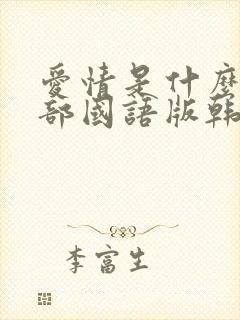 愛情是什麼
部國語版韩
李富生